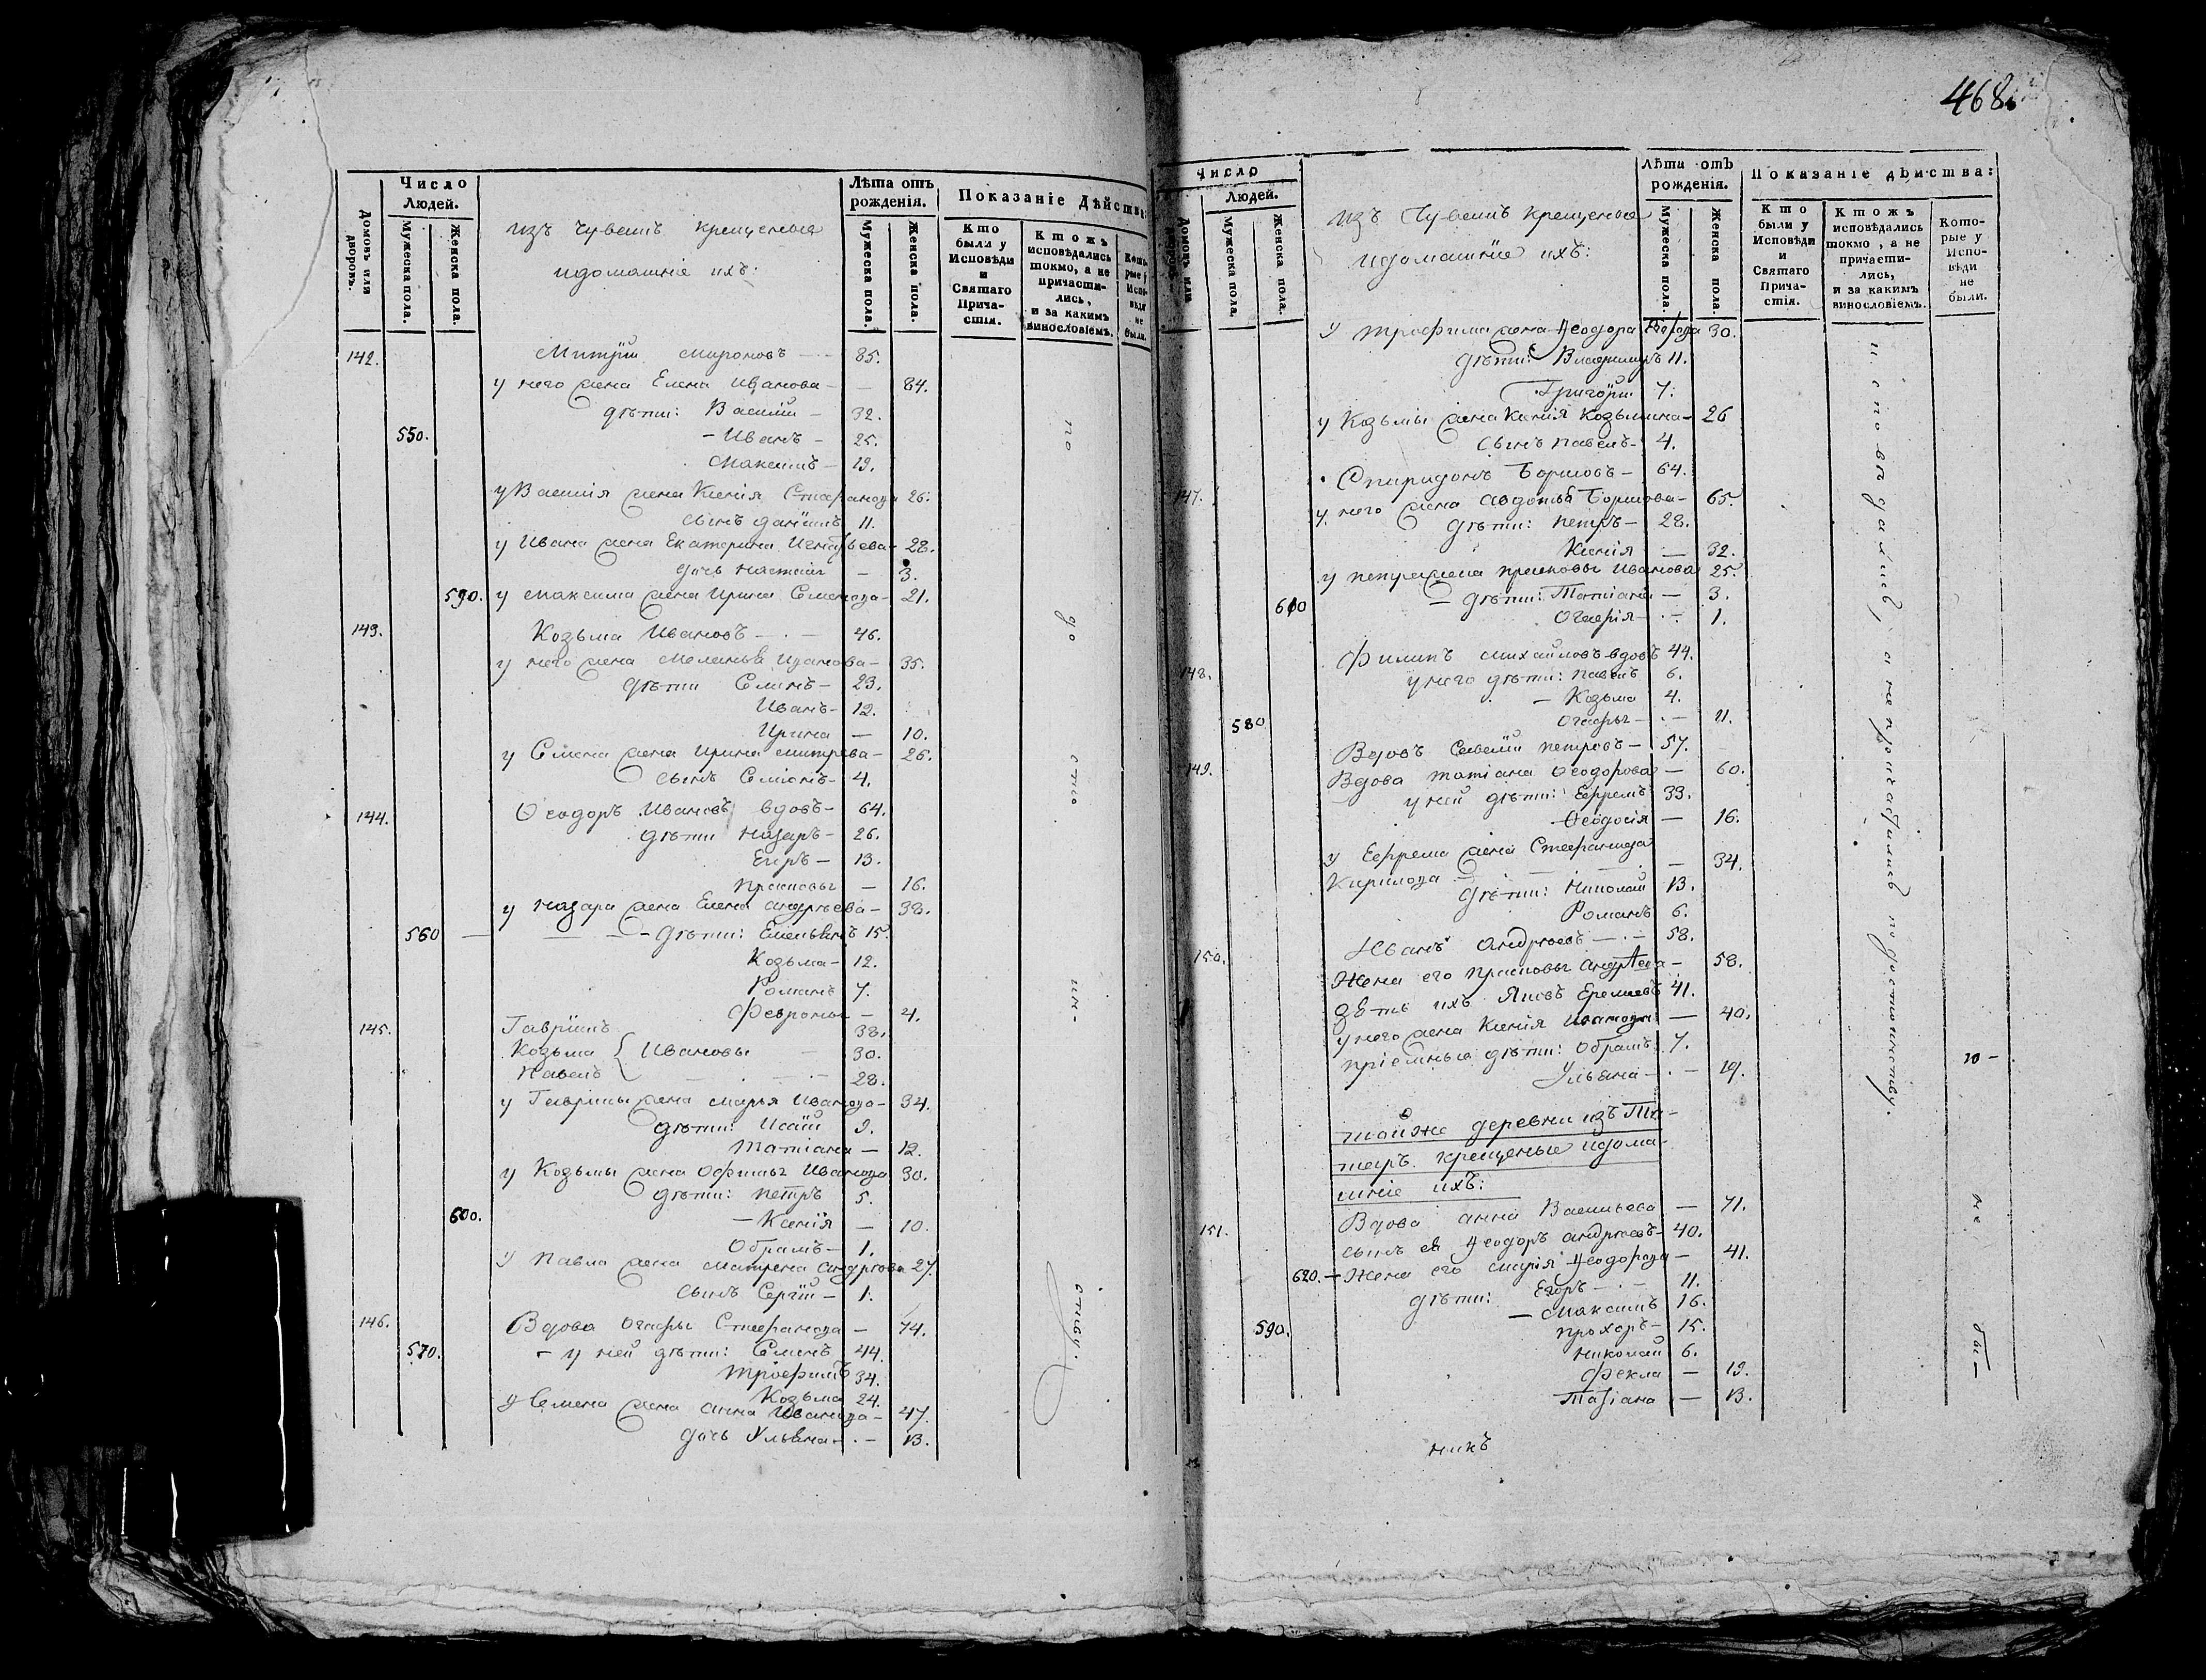 468.
Число Людей.
Домовъ или дворовъ.
Мужеска пола.
Женска пола.
изъ Чувашъ крещеные
идомашніе ихъ:
Лѣта отъ рожденія.
Мужеска пола.
Женска пола.
Показаніе Дѣйства:
Кто были у Исповѣди и Святаго Причастія.
Ктожъ исповѣдались токмо, а не причастились, и за какимъ винословіемъ.
Которые у Исповѣди не были.
142. Митрій Мироновъ — 85.
у него жена Елена Иванова — 84.
дѣти: Василій — 32.
550. — Иванъ — 25.
Максимъ — 19.
у Василія жена Ксенія Стефанова 26.
сынъ Даніилъ 11.
у Ивана жена Екатерина Игнатьева — 28.
дочь Настасія — 3.
590. у Максима жена Ирина Семенова — 21.
143. Козьма Ивановъ — 46.
у него жена Меланья Иванова — 35.
дѣти Семенъ — 23.
Иванъ — 12.
Ирина — 10.
у Семена жена Ирина Митрева — 26.
сынъ Семіонъ — 4.
144. Ѳеодоръ Ивановъ вдовъ — 64.
дѣти Назаръ — 26.
Егоръ — 13.
Прасковья — 16.
у Назара жена Елена Андрѣева — 38.
560 — дѣти: Емельянъ 15.
Козьма — 12.
Романъ 7.
Февронья — 4.
145. Гаврiилъ 38.
Козьма { Ивановы — 30.
Павелъ — 28.
у Гаврилы жена Марья Иванова — 34.
дѣти: Исай 9.
Татіана — 12.
у Козьмы жена Офимья Иванова 30.
дѣти: Петръ 5.
600. — Ксенія — 10.
Обрамъ — 1.
у Павла жена Матрена Андрѣева 27.
сынъ Сергій — 1.
146. Вдова Огафья Стефанова — 74.
570. — у ней дѣти: Семенъ 44.
Трофимъ 34.
Козьма 24.
у Семена жена Анна Иванова — 47.
дочь Ульяна — 13.
по до сто ин ству.
Число Людей.
Домовъ или
Мужеска пола.
Женска пола.
изъ Чувашъ крещеные
идомашніе ихъ:
Лѣта отъ рожденія.
Мужеска пола.
Женска пола.
Показаніе дѣиства:
Кто были у Исповѣди и Святаго Причастія.
Ктожъ исповѣдались токмо, а не причастились, и за какимъ винословіемъ.
Которые у Исповѣди не были.
у Трофима жена Ѳеодора 30.
дѣти: Владимиръ 11.
Григорій 7.
у Козьмы жена Ксенія Козьмина — 26
сынъ Павелъ — 4.
147. Спиридонъ Борисовъ — 64.
у него жена Авдотья Борисова — 65.
дѣти: Петръ — 28.
Ксенія — 32.
у Петра жена Прасковья Иванова 25.
610 — дѣти: Татіана — 3.
Огафія — 1.
148. Филипъ Михайловъ вдовъ 44.
у него дѣти: Павелъ 6.
— Козьма 4.
580 Огафья — 11.
Вдовъ Савелій Петровъ — 57.
149. Вдова Татіана Ѳеодорова — 60.
у ней дѣти: Ефремъ 33.
Ѳеодосія — 16.
у Ефрема жена Стефанида
Кирилова — 34.
дѣти: Николай 13.
Романъ 6.
150. Иванъ Андрѣевъ — 58.
Жена его Прасковья Андрѣева — 58.
зять ихъ Яковъ Еремеевъ 41.
у него жена Ксенія Иванова — 40.
пріемные дѣти: Обрамъ 7.
Ульяна — 19.
тойже деревни изъ Та-
таръ крещеные идома-
шніе ихъ:
151. Вдова Анна Васильева — 71.
сынъ ея Ѳеодоръ Андрѣевъ — 40.
620. — Жена его Марія Ѳеодорова — 41.
дѣти: Егоръ — 11.
— Максимъ 16.
590. Прохоръ — 15.
Николай 6.
Фекла — 19.
Татіана — 13.
исповѣдались, а непричастились подостоинству.
не бы—
никъ